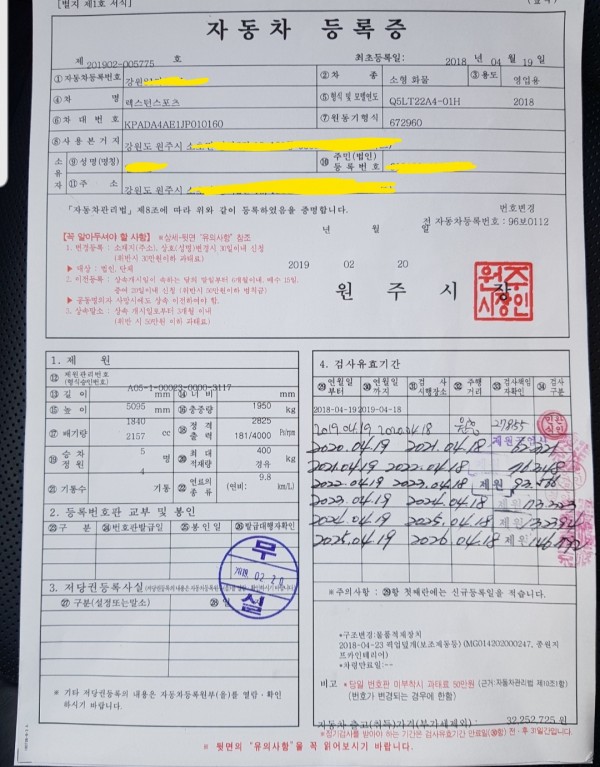 [별지 제1호 서식]
자동차 등록증
제 201902-005775 호 최초등록일: 2018 년 04 월 19 일
① 자동차등록번호 강원 ② 차 종 소형 화물 ③ 용도 영업용
④ 차 명 렉스턴스포츠 ⑤ 형식 및 모델연도 Q5LT22A4-01H 2018
⑥ 차 대 번 호 KPADA4AE1JP010160 ⑦ 원동기형식 672960
⑧ 사용본거지 강원도 원주시
소유자 ⑨ 성명(명칭) ⑩ 주민(법인)등록번호
⑪ 주 소 강원도 원주시
「자동차관리법」제8조에 따라 위와 같이 등록하였음을 증명합니다.
번호변경
년 월 일
전 자동차등록번호 : 96보0112
[꼭 알아두셔야 할 사항] ※상세-뒷면 "유의사항" 참조
1. 변경등록 : 소재지(주소), 상호(성명)변경시 30일이내 신청
(위반시 30만원이하 과태료)
▶ 대상 : 법인, 단체
2. 이전등록 : 상속개시일이 속하는 달의 말일부터 6개월이내, 매수 15일,
증여 20일이내 신청 (위반시 50만원이하 범칙금)
▶ 공동명의자 사망시에도 상속 이전하여야 함.
3. 상속말소 : 상속 개시일로부터 3개월 이내
(위반시 50만원 이하 과태료)
2019 02 20
원 주 시 장
원주시장인
1. 제 원
⑫ 제원관리번호 (형식승인번호) A05-1-00023-0000-3117
⑬ 길 이 5095 mm ⑭ 너 비 1950 mm
⑮ 높 이 1840 mm ⑯ 총중량 2825 kg
⑰ 배기량 2157 cc ⑱ 정격출력 181/4000 Ps/rpm
⑲ 승차정원 5 명 ⑳ 최대적재량 400 kg
㉑ 기통수 4 기통 ㉒ 연료의 종류 경유 (연비: 9.8 km/L)
2. 등록번호판 교부 및 봉인
㉓ 구 분 ㉔ 번호판발급일 ㉕ 봉 인 일 ㉖ 발급대행자확인
3. 저당권등록사실
㉗ 구분(설정또는말소) ㉘
무
2019. 02. 20
실
※ 기타 저당권등록의 내용은 자동차등록원부(을)를 열람·확인
하시기 바랍니다.
4. 검사유효기간
㉙ 연월일부터 ㉚ 연월일까지 ㉛ 검사시행장소 ㉜ 주행거리 ㉝ 검사책임자확인 ㉞ 검사구분
2018-04-19 2019-04-18
2019.04.19 2020.04.18 27855
2020.04.19 2021.04.18
2021.04.19 2022.04.18
2022.04.19 2023.04.18 제원
2023.04.19 2024.04.18
2024.04.19 2025.04.18 제원
2025.04.19 2026.04.18 제원
※주의사항 : ㉙항 첫째란에는 신규등록일을 적습니다.
*구조변경:물품적재장치
2018-04-23 픽업덮개(보조제동등) (MG014202000247, 종원지
프카인테리어)
*차령만료일:--
비고 *당일 번호판 미부착시 과태료 50만원 (근거:자동차관리법 제10조1항)
(번호가 변경되는 경우에 한함)
자동차 출고(취득)가격(부가세제외): 32,252,725 원
※정기검사를 받아야 하는 기간은 검사유효기간 만료일(㉚항) 전·후 31일간입니다.
※ 뒷면의 "유의사항"을 꼭 읽어보시기 바랍니다.